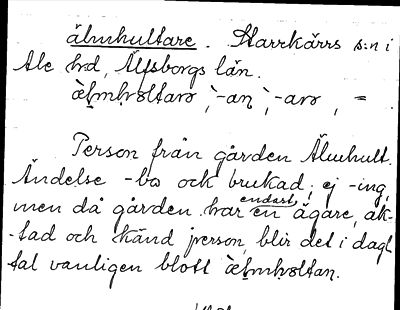 älmhultare. Starrkärrs s:n i
Ale hd, Älfsborgs län.
Person från gården Älmhult.
Ändelse -bo ock brukad; ej -ing,
men då gården har endast en ägare, ak-
tad och känd person, blir det i dagl.
tal vanligen blott